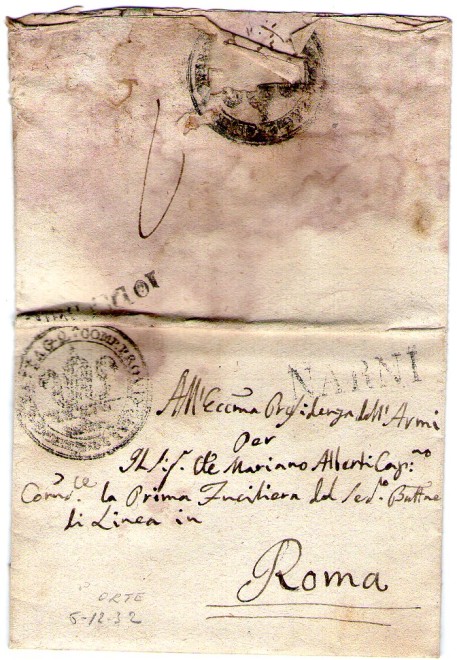 NARNI
All'Eccma Presidenza dell'Armi
per
Il Sig. Mariano Alberti Cap:no
Comd.te la Prima Fuciliera del Sed.o Battne
di Linea in
Roma
ORTE
5-12-32